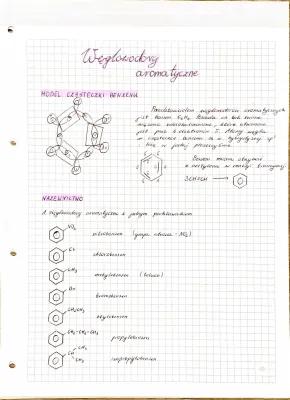 Węglowodory
aromatyczne
MODEL CZĄSTECZKI BENZENU
Przedstawicielem węglowodorów aromatycznych
jest benzen C₆H₆. Posiada on tak zwane
jest para 6 elektronów π. Atomy węgla
w cząsteczce benzenu są w hybrydyzacji sp²
leżą w jednej płaszczyźnie.
Benzen można otrzymać
z acetylenu w reakcji trimeryzacji
3CHCH →
NAZEWNICTWO
1. Węglowodory aromatyczne z jednym podstawnikiem
NO₂ nitrobenzen (grupa nitrowa -NO₂)
Cl chlorobenzen
CH₃ metylobenzen (toluen)
Br bromobenzen
CH₂CH₃ etylobenzen
CH₂-CH₂-CH₃ propylobenzen
CH₃
CH
CH₃ izopropylobenzen